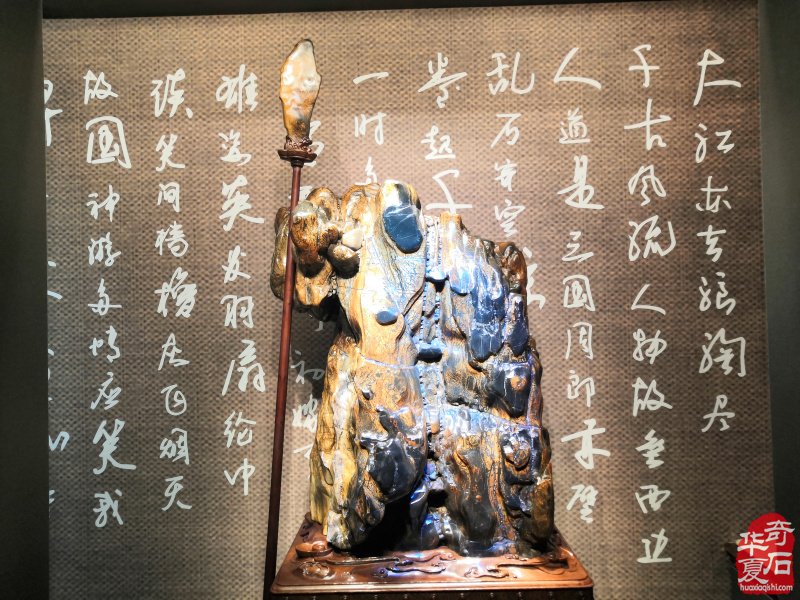 大江东去浪淘尽
千古风流人物故垒西边
人道是三国周郎赤壁
乱石穿空
卷起千
一时多
初嫁了
雄姿英发羽扇纶巾
谈笑间樯橹灰飞烟灭
故國神游多情应笑我
华夏奇石
huaxiaqishi.com